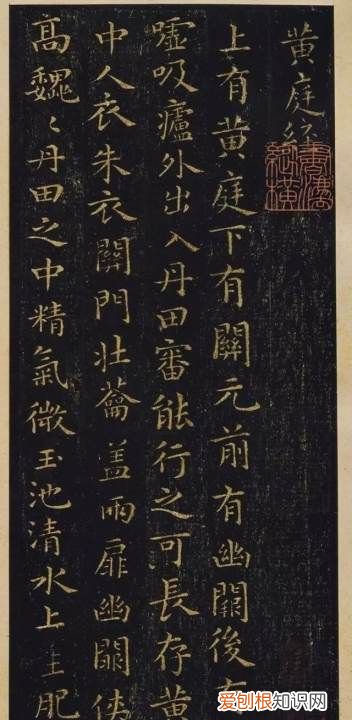 黄庭經
上有黄庭下有關元前有幽闕後有
嘘吸廬外出入丹田審能行之可長存黄
中人衣朱衣關門壯蘥盖兩扉幽闕俠
高魏〻丹田之中精氣微玉池清水上生肥
爱刨根知识网